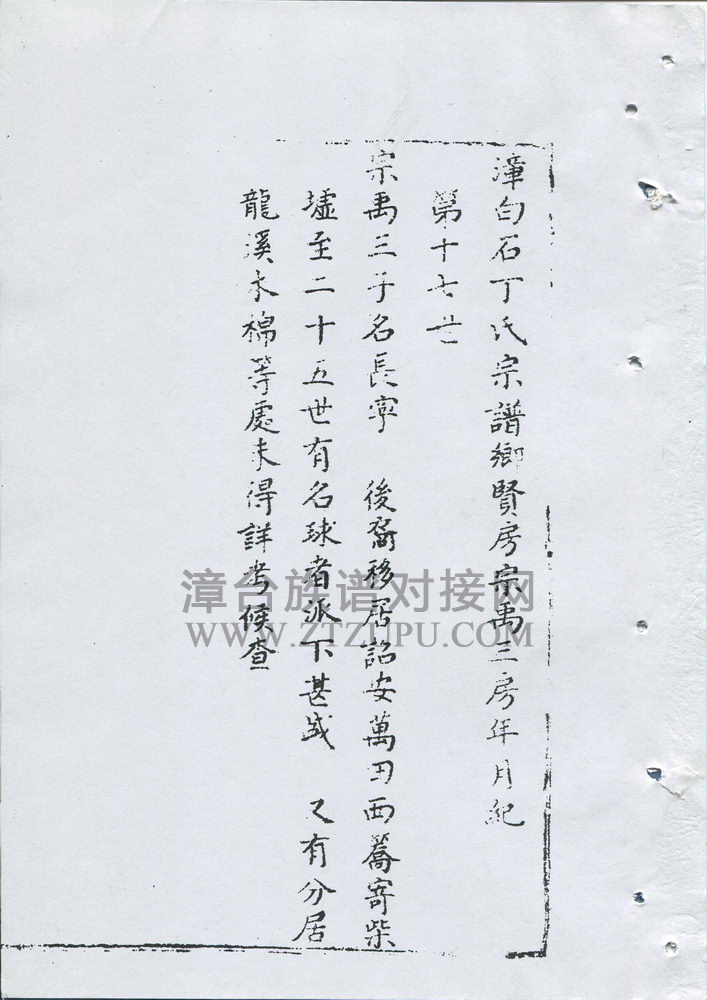 漳白石丁氏宗譜鄉賢房宗禹三房年月紀
第十七世
宗禹三子名長寧 後裔移居詔安萬田西䓕寄柴
墟至二十五世有名球者派下甚盛 又有分居
龍溪木棉等處未得詳考候查
漳台族谱对接网
WWW.ZTZUPU.COM